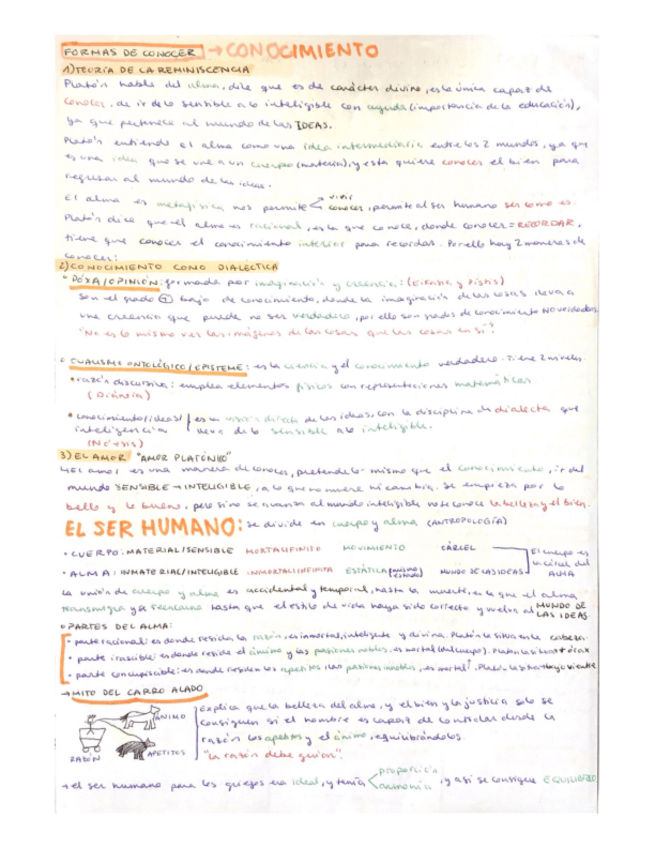 FORMAS DE CONOCER → CONOCIMIENTO
1) TEORÍA DE LA REMINISCENCIA
Platón habla del alma, dice que es de carácter divino, es la única capaz de
conocer, de ir de lo sensible a lo inteligible con ayuda (importancia de la educación),
ya que pertenece al mundo de las IDEAS.
Platón entiende el alma como una idea intermediaria entre los 2 mundos, ya que
es una idea que se une a un cuerpo (materia), y esta quiere conocer el bien para
regresar al mundo de las ideas.
El alma es metafísica nos permite vivir
conocer, permite al ser humano ser como es.
Platón dice que el alma es racional, es la que conoce, donde conocer = RECORDAR,
tiene que conocer el conocimiento interior para recordar. Por ello hay 2 maneras de
conocer:
2) CONOCIMIENTO COMO DIALÉCTICA
DÓXA/OPINIÓN: formada por imaginación y creencia: (Eikasia y Pistis)
son el grado + bajo de conocimiento, donde la imaginación de las cosas lleva a
una creencia que puede no ser verdadera, por ello son grados de conocimiento NO verdaderos
"No es lo mismo ver las imágenes de las cosas que las cosas en sí"
DUALISMO ONTOLÓGICO/EPISTEME: es la ciencia y el conocimiento verdadero. Tiene 2 niveles.
• razón discursiva: emplea elementos físicos con representaciones matemáticas.
(Diánoia)
• conocimiento/ideas/ es una visión directa de las ideas, con la disciplina de dialecta que
inteligencia lleva de lo sensible a lo inteligible.
(Nóesis)
3) EL AMOR "AMOR PLATÓNICO"
El amor es una manera de conocer, pretende lo mismo que el conocimiento, ir del
mundo SENSIBLE → INTELIGIBLE, a lo que no muere ni cambia. Se empieza por lo
bello y lo bueno, pero si no se avanza al mundo inteligible no se conoce la belleza y el bien.
EL SER HUMANO: se divide en cuerpo y alma (ANTROPOLOGÍA)
• CUERPO: MATERIAL/SENSIBLE MORTAL/FINITO MOVIMIENTO CÁRCEL
El cuerpo es la cárcel del ALMA
• ALMA: INMATERIAL/INTELIGIBLE INMORTAL/INFINITA ESTÁTICA (mismo estado) MUNDO DE LAS IDEAS
La unión de cuerpo y alma es accidental y temporal, hasta la muerte, en la que el alma
transmigra y se reencarna hasta que el estilo de vida haya sido correcto y vuelva al MUNDO DE LAS IDEAS
PARTES DEL ALMA:
• parte racional: es donde resida la razón, es inmortal, inteligente y divina. Platón la sitúa en la cabeza.
• parte irascible: es donde reside el ánimo y las pasiones nobles, es mortal (del cuerpo). Platón la sitúa tórax
• parte concupiscible: es donde residen los apetitos, las pasiones innobles, es mortal. Platón la sitúa bajo vientre
→ MITO DEL CARRO ALADO
ÁNIMO
APETITOS
RAZÓN
Explica que la belleza del alma, y el bien y la justicia solo se
consiguen si el hombre es capaz de controlar desde la
razón los apetitos y el ánimo, equilibrándolos.
"la razón debe guiar".
→ el ser humano para los griegos era ideal, y tenía proporción
armonía, y así se consigue EQUILIBRIO